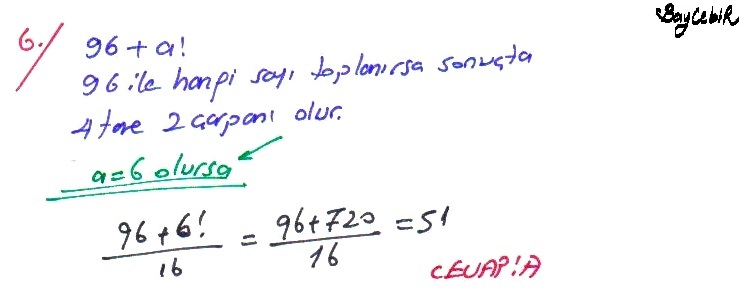 BayCebiR
6.) 96+a!
96 ile hangi sayı toplanırsa sonuçta
4 tane 2 çarpanı olur.
a=6 olursa
96+6!/16 = 96+720/16 = 51
CEVAP:A